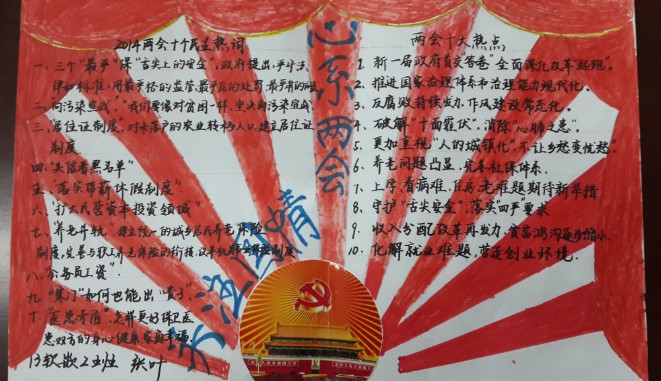 心系两会
关注国情
2014两会十个民生热词
一、三个"最严"保"舌尖上的安全",政府提出,严守法、
律和标准,用最严格的监管、最严厉的处罚、最严肃的
二、向污染宣战"我们要像对贫困一样,坚决向污染宣战"
三、居住证制度,对未落户的农业转移人口,建立居住证
制度
四、"失信者黑名单"
五、"落实带薪休假制度"
六、"扩大民营资本投资领域"
七、"养老并轨"建立统一的城乡居民养老保险
制度,完善与职工养老保险的衔接,改革机关事业
八、"公务员工资".
九、"寒门"如何也能出"贵子"
十、"医患矛盾",怎样更好保卫医
患双方的身心健康、家庭幸福.
13软数工班 张叶
两会十大热点
1. 新一届政府首交答卷"全面深化改革起跑".
2. 推进国家治理体系和治理能力现代化.
3. 反腐败持续发力,作风建设常态化.
4. 破解"十面霾伏",消除"心肺之患".
5. 更加重视"人的城镇化",不让乡愁变忧愁.
6. 养老问题凸显,完善社保体系.
7. 上学、看病难、住房、老难题期待新举措
8. 守护"舌尖安全",落实"四严"要求
9. 收入分配改革再发力,贫富鸿沟逐步缩小.
10. 化解就业难题,营造创业环境.